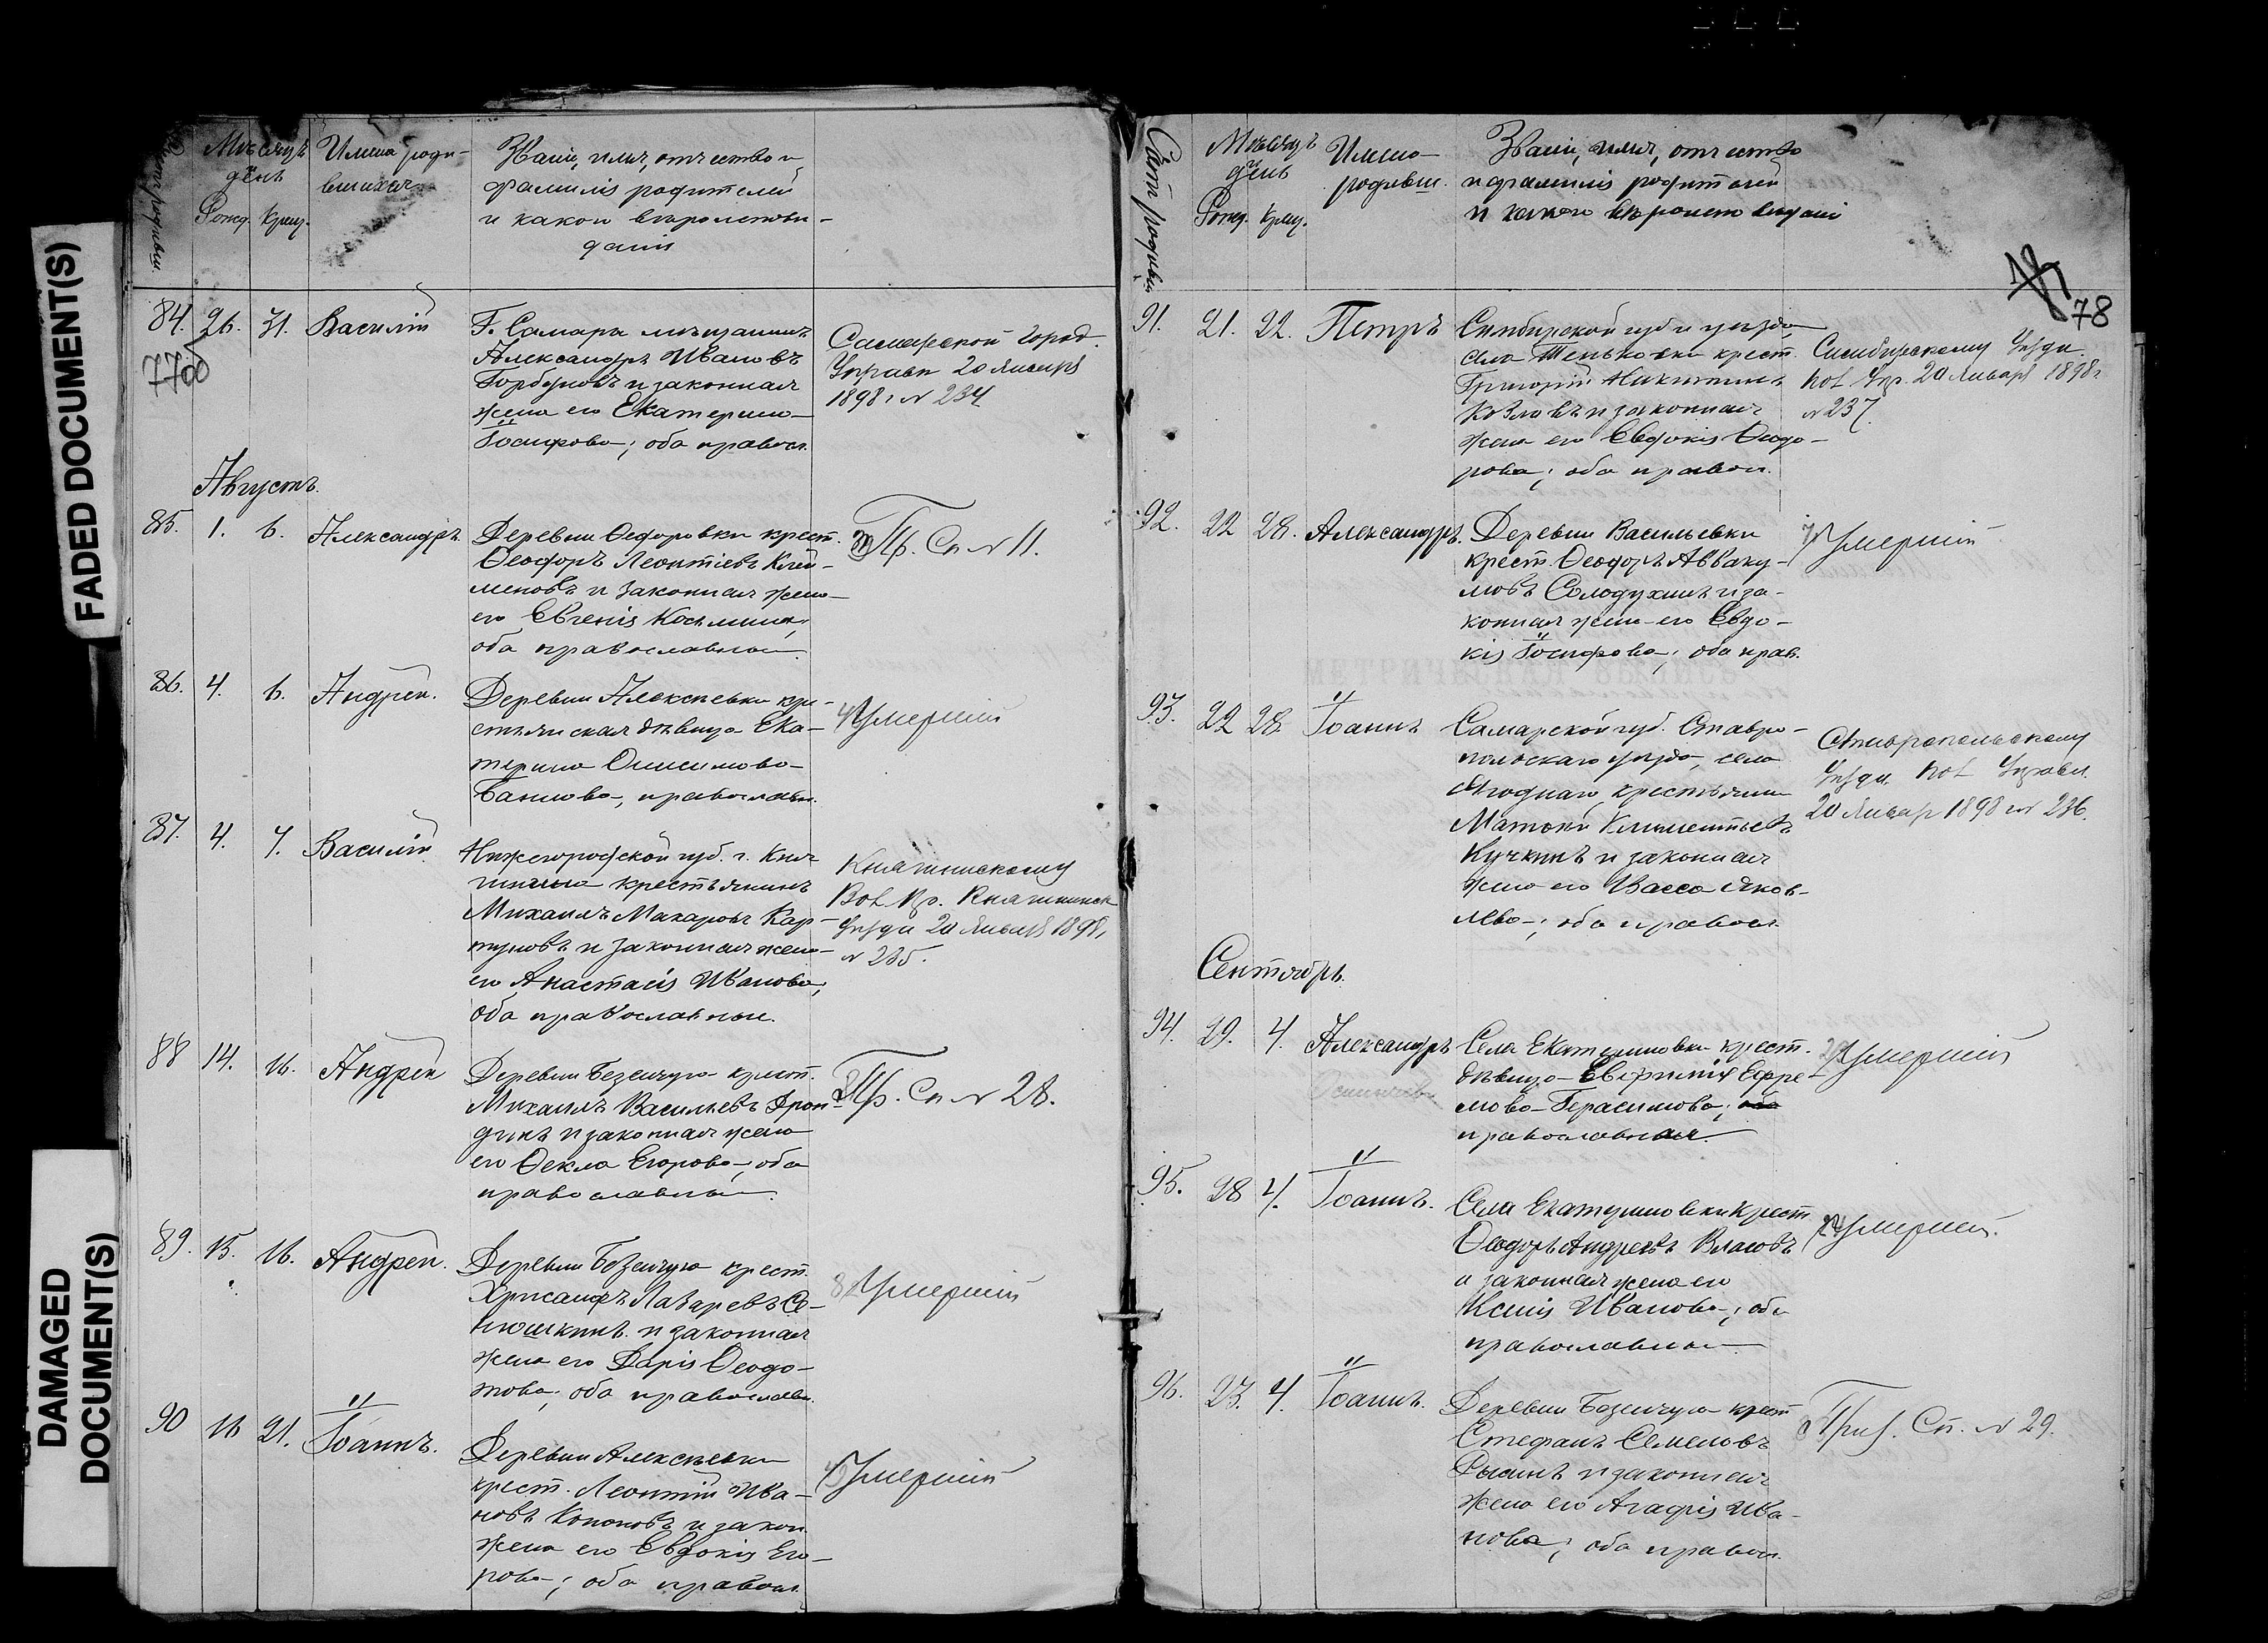 FADED DOCUMENT(S)
DAMAGED
DOCUMENT(S)
Счетъ родивш.
Мѣсяцъ
и день
Рожд. Крещ.
Имена роди-
вшихся
Званіе, имя, отчество и
фамилія родителей
и какого вѣроисповѣ-
данія
84. 26. 31. Василій
Г. Самары мѣщанинъ
Александръ Ивановъ
Горбуновъ и законная
жена его Екатерина
Іосифова; оба правосл.
Самарской город.
Управы 20 Января
1898 г. № 234
Августъ.
85. 1. 6. Александръ.
Деревни Федоровки крест.
Ѳеодоръ Леонтіевъ Клей-
меновъ и законная жена
его Евгенія Козьмина;
оба православные.
Пр. Сп. № 11.
86. 4. 6. Андрей.
Деревни Алексѣевки кре-
стьянская дѣвица Ека-
терина Онисимова
православн.
Умершій
87. 4. 7. Василій.
Нижегородской губ. г. Кня-
гинина крестьянинъ
Михаилъ Макаровъ Кар-
пуновъ и законная жена
его Анастасія Иванова;
оба православные.
Княгининскому
Вол. Пр. Княгининск.
Уѣзда 20 Января 1898 г.
№ 235.
88 14. 16. Андрей
Деревни Безенчука крест.
Михаилъ Васильевъ Дрон-
динъ и законная жена
его Ѳекла Егорова; оба
православные.
Пр. Сп. № 28.
89. 15. 16. Андрей.
Деревни Безенчука крест.
Хрисанфъ Лазаревъ Се-
нюшкинъ и законная
жена его Дарія Ѳеодо-
това; оба православн.
Умершій
90 16 21. Іоаннъ.
Деревни Алексѣевки
крест. Леонтій Ива-
новъ Кононовъ и закон.
жена его Евдокія Его-
рова; оба правосл.
Умершій
Счетъ родивш.
Мѣсяцъ
и день
Рожд. Крещ.
Имена
родивш.
Званіе, имя, отчество
и фамилія родителей
и какого вѣроисповѣданія
78
91. 21. 22. Петръ
Симбирской губ. и уѣзда,
села Теньковки крест.
Григорій Никитинъ
Козловъ и законная
жена его Евдокія Ѳеодо-
рова; оба правосл.
Симбирскому Уѣздн.
Пол. Упр. 20 Января 1898 г.
№ 237.
92. 22 28. Александръ.
Деревни Васильевки
крест. Ѳеодоръ Авваку-
мовъ Солодухинъ и за-
конная жена его Евдо-
кія Іосифова; оба прав.
Умершій
93. 22 28. Іоаннъ
Самарской губ. Ставро-
польскаго уѣзда, села
Ягоднаго крестьянинъ
Матѳей Климентьевъ
Кучкинъ и законная
жена его Васса Яков-
лева; оба правосл.
Ставропольскому
Уѣздн. Пол. Управл.
20 Январ 1898 г. № 236.
Сентябрь.
94. 29. 4. Александръ
Села Екатериновки крест.
дѣвица Евфимія Ефре-
мова Герасимова; оба
православная.
Умершій
95. 28 4. Іоаннъ.
Села Екатериновки крест.
Ѳеодоръ Андреевъ Власовъ
и законная жена его
Ксенія Иванова; оба
православные.
Умершій.
96. 23. 4. Іоаннъ.
Деревни Безенчука крест.
Стефанъ Семеновъ
и законная
жена его Агафія Ива-
нова; оба правосл.
Приз. Сп. № 29.